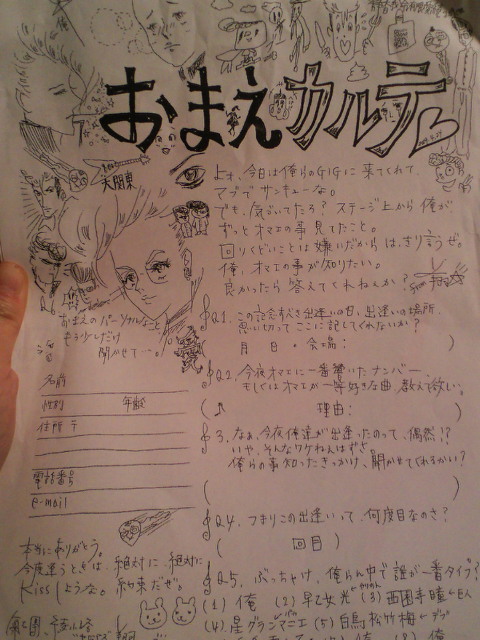 おまえカルテ
大関東
よォ、今日は俺らのGIGに来てくれて、
マブでサンキューな。
でも、気づいてたろ？ステージ上から俺が
ずっとオマエの事見てたこと。
回りくどいことは嫌いだからはっきり言うぜ。
俺、オマエの事が知りたい。
良かったら答えてくれねんか？
Q1. この記念すべき出逢いの日、出逢いの場所、
思い切ってここに記してくれないか？
月 日・会場： )
Q2. 今夜オマエに一番響いたナンバー、
もしくはオマエが一等好きな曲、教えて欲しい。
(♪ 理由： )
3. なぁ、今夜俺達が出逢ったのって、偶然!?
いや、そんなワケねんはずさ。
俺らの事知ったきっかけ、聞かせてくれるかい？
( )
Q4. つまりこの出逢いって、何度目なのさ？
( 回目)
Q5. ぶっちゃけ、俺らん中で誰が一番タイプ？
(1) 俺 (2) 早乙女光 (3) 西園寺瞳
(4) 星グランマニエ (5) 白鳥松竹梅
おまえのパーソナルなこと
もう少しだけ
聞かせてー。
名前
性別 年齢
住所 〒
電話番号
e-mail
本当にありがとう。
今度逢うときは、絶対に、絶対に
Kissしような。約束だぜ。